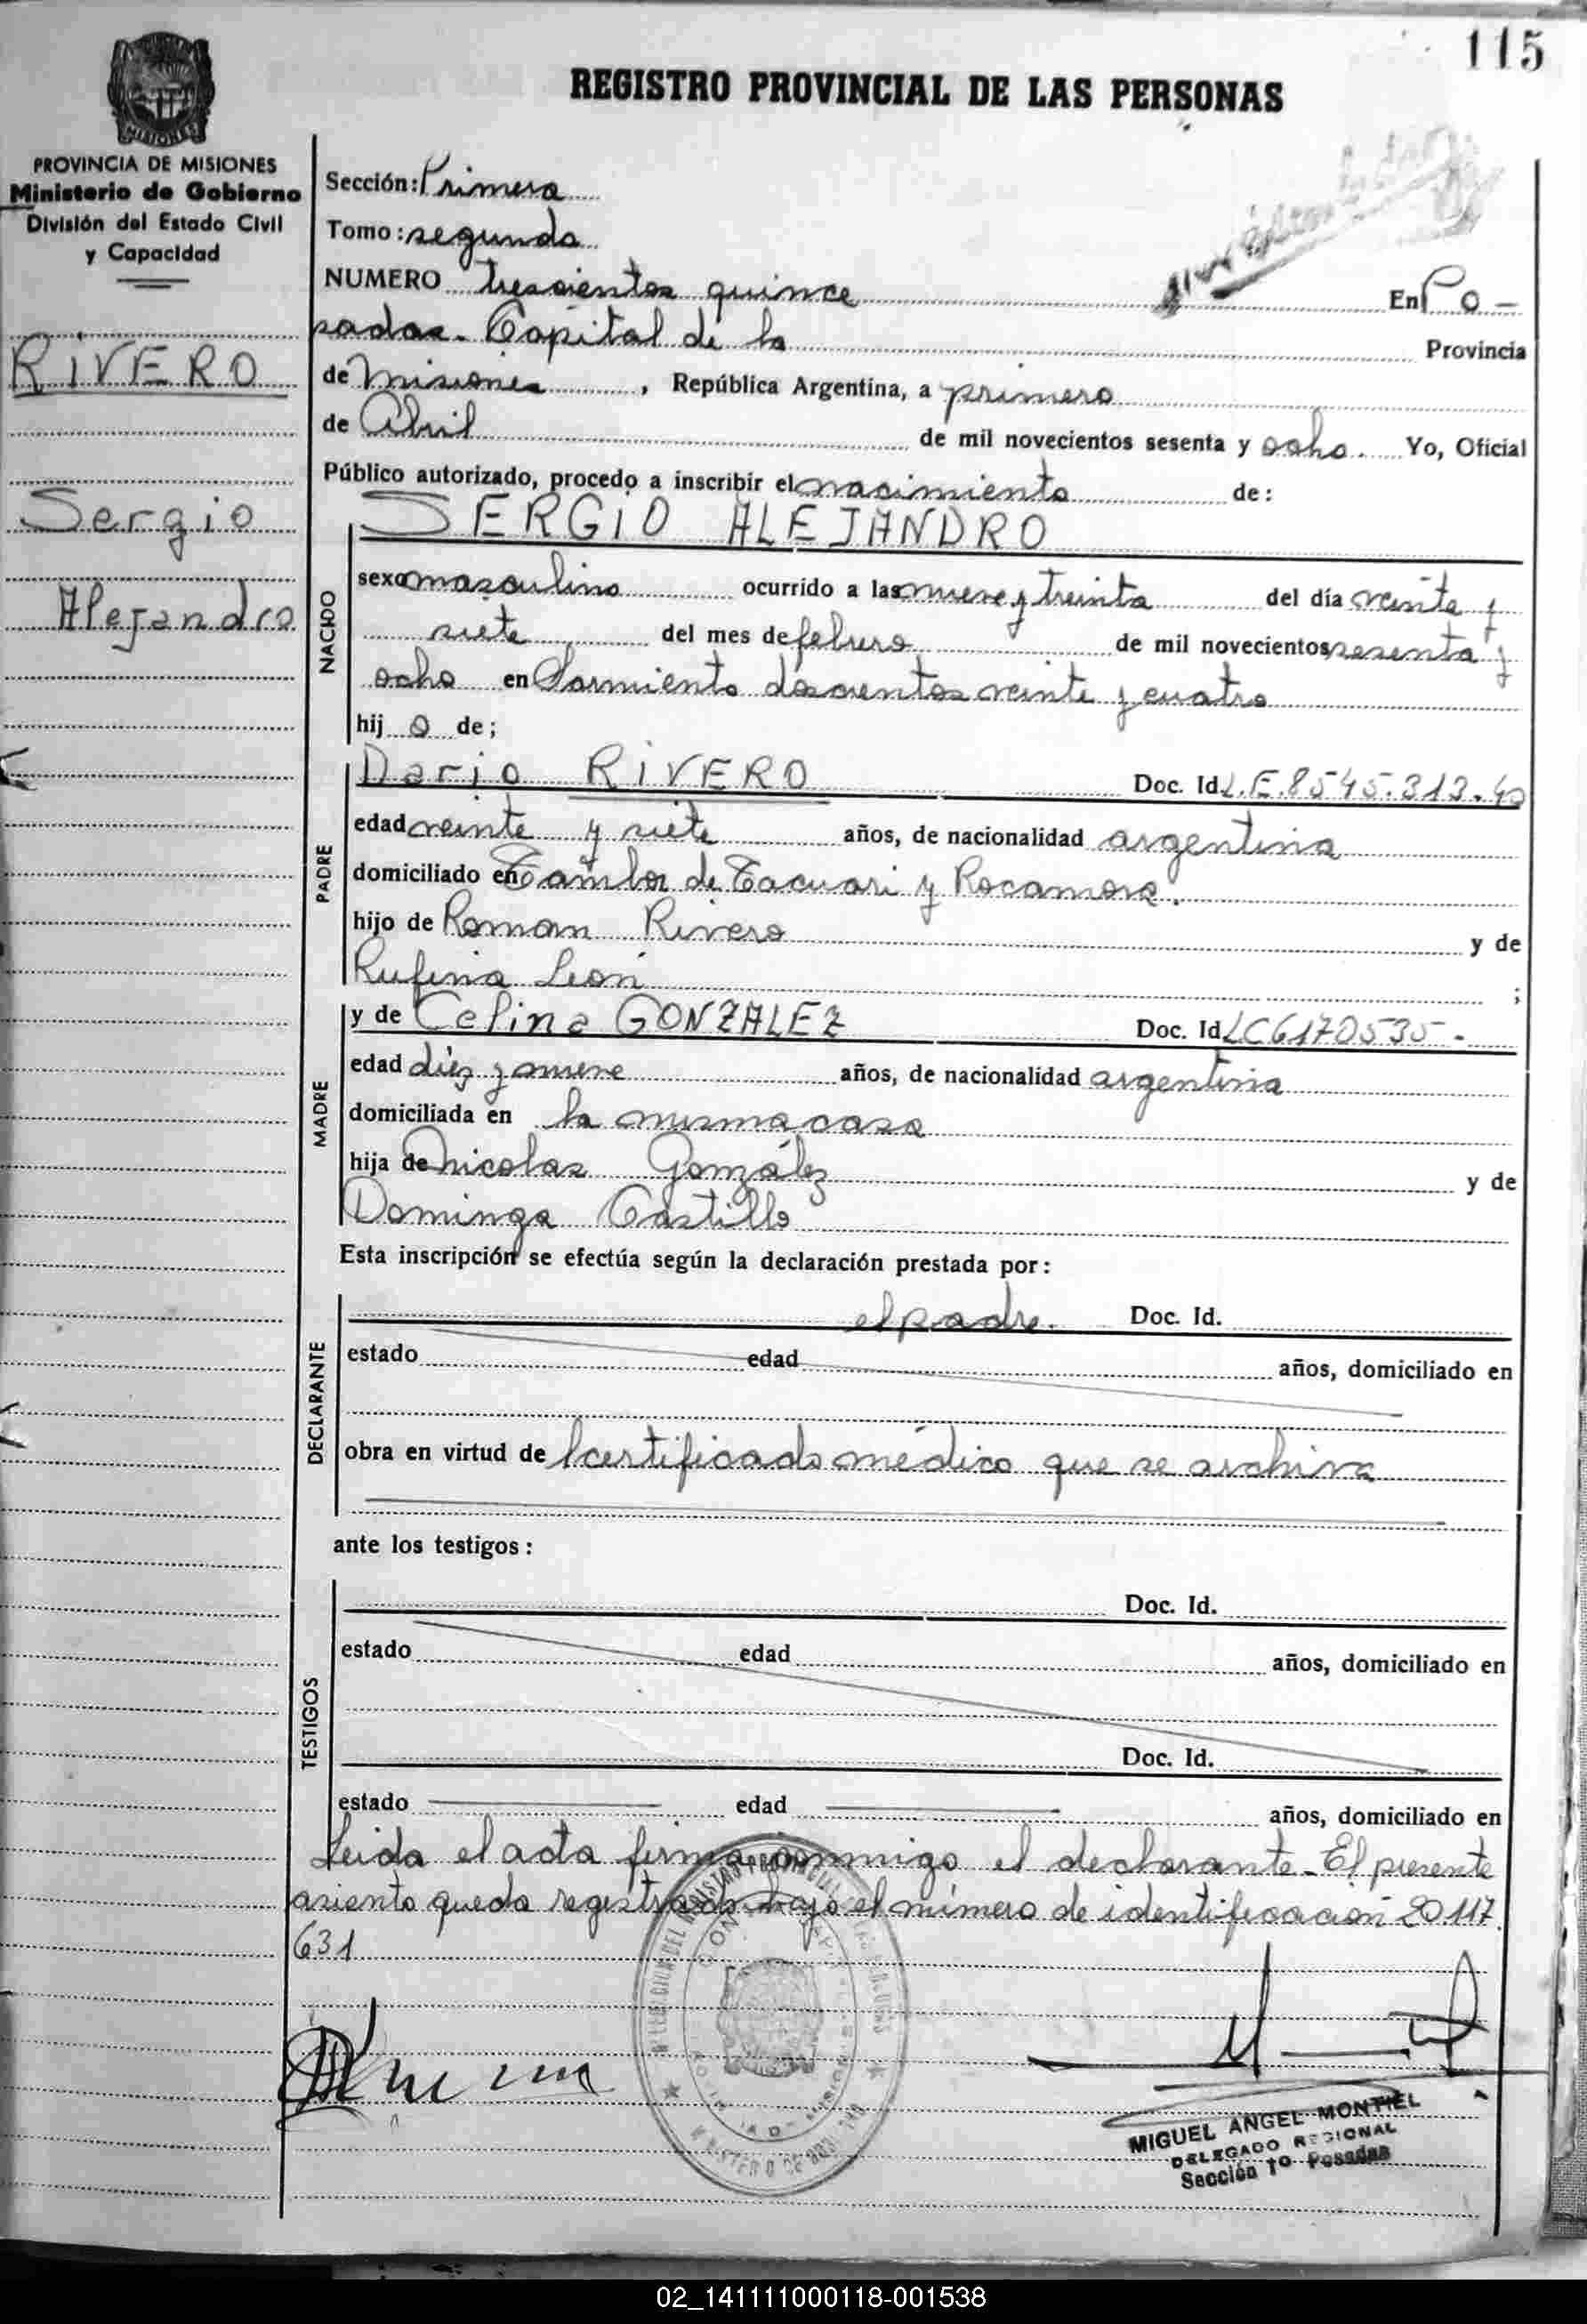 115
REGISTRO PROVINCIAL DE LAS PERSONAS
MISIONES
PROVINCIA DE MISIONES
Ministerio de Gobierno
División del Estado Civil
y Capacidad
RIVERO
Sergio
Alejandro
Sección: Primera
Tomo: segundo
NUMERO trescientos quince En Po-
sadas. Capital de la Provincia
de Misiones, República Argentina, a primero
de Abril de mil novecientos sesenta y ocho. Yo, Oficial
Público autorizado, procedo a inscribir el nacimiento de:
SERGIO ALEJANDRO
NACIDO
sexo masculino ocurrido a las nueve y treinta del día veinte y
siete del mes de febrero de mil novecientos sesenta y
ocho en Sarmiento doscientos veinte y cuatro
hij o de;
PADRE
Dario RIVERO Doc. Id. L.E.8545.313.40
edad veinte y siete años, de nacionalidad argentina
domiciliado en Tambor de Tacuari y Rocamora.
hijo de Roman Rivero y de
Rufina Leon ;
MADRE
y de Celina GONZALEZ Doc. Id LC6170535-
edad diez y nueve años, de nacionalidad argentina
domiciliada en la misma casa
hija de Nicolas González y de
Dominga Castillo
Esta inscripción se efectúa según la declaración prestada por:
DECLARANTE
el padre. Doc. Id.
estado edad años, domiciliado en
obra en virtud de l certificado médico que se archiva
ante los testigos:
TESTIGOS
Doc. Id.
estado edad años, domiciliado en
Doc. Id.
estado edad años, domiciliado en
Leida el acta firma conmigo el declarante. El presente
asiento queda registrado bajo el número de identificación 20117
631
MIGUEL ANGEL MONTIEL
DELEGADO REGIONAL
Sección 1º Posadas
02_141111000118-001538